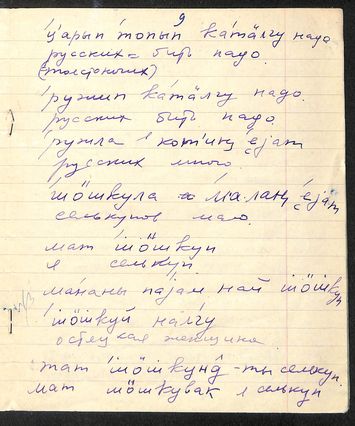 9
ӵарып топып ка́тӓлгу надо
русских = бить надо.
(толстоногих)
ружип ка́тӓлгу надо.
русских бить надо.
ружла коч'иң ејат
русских много.
шӧшкула ма́лаң ејат
селькупов мало.
мат шӧшкуп
я селькуп
ма́наны пајам най шӧшкуп
шӧшкуй на́лгу
остяцкая женщина
тат шӧшкунд̂ - ты селькуп.
мат шӧшкувак я селькуп